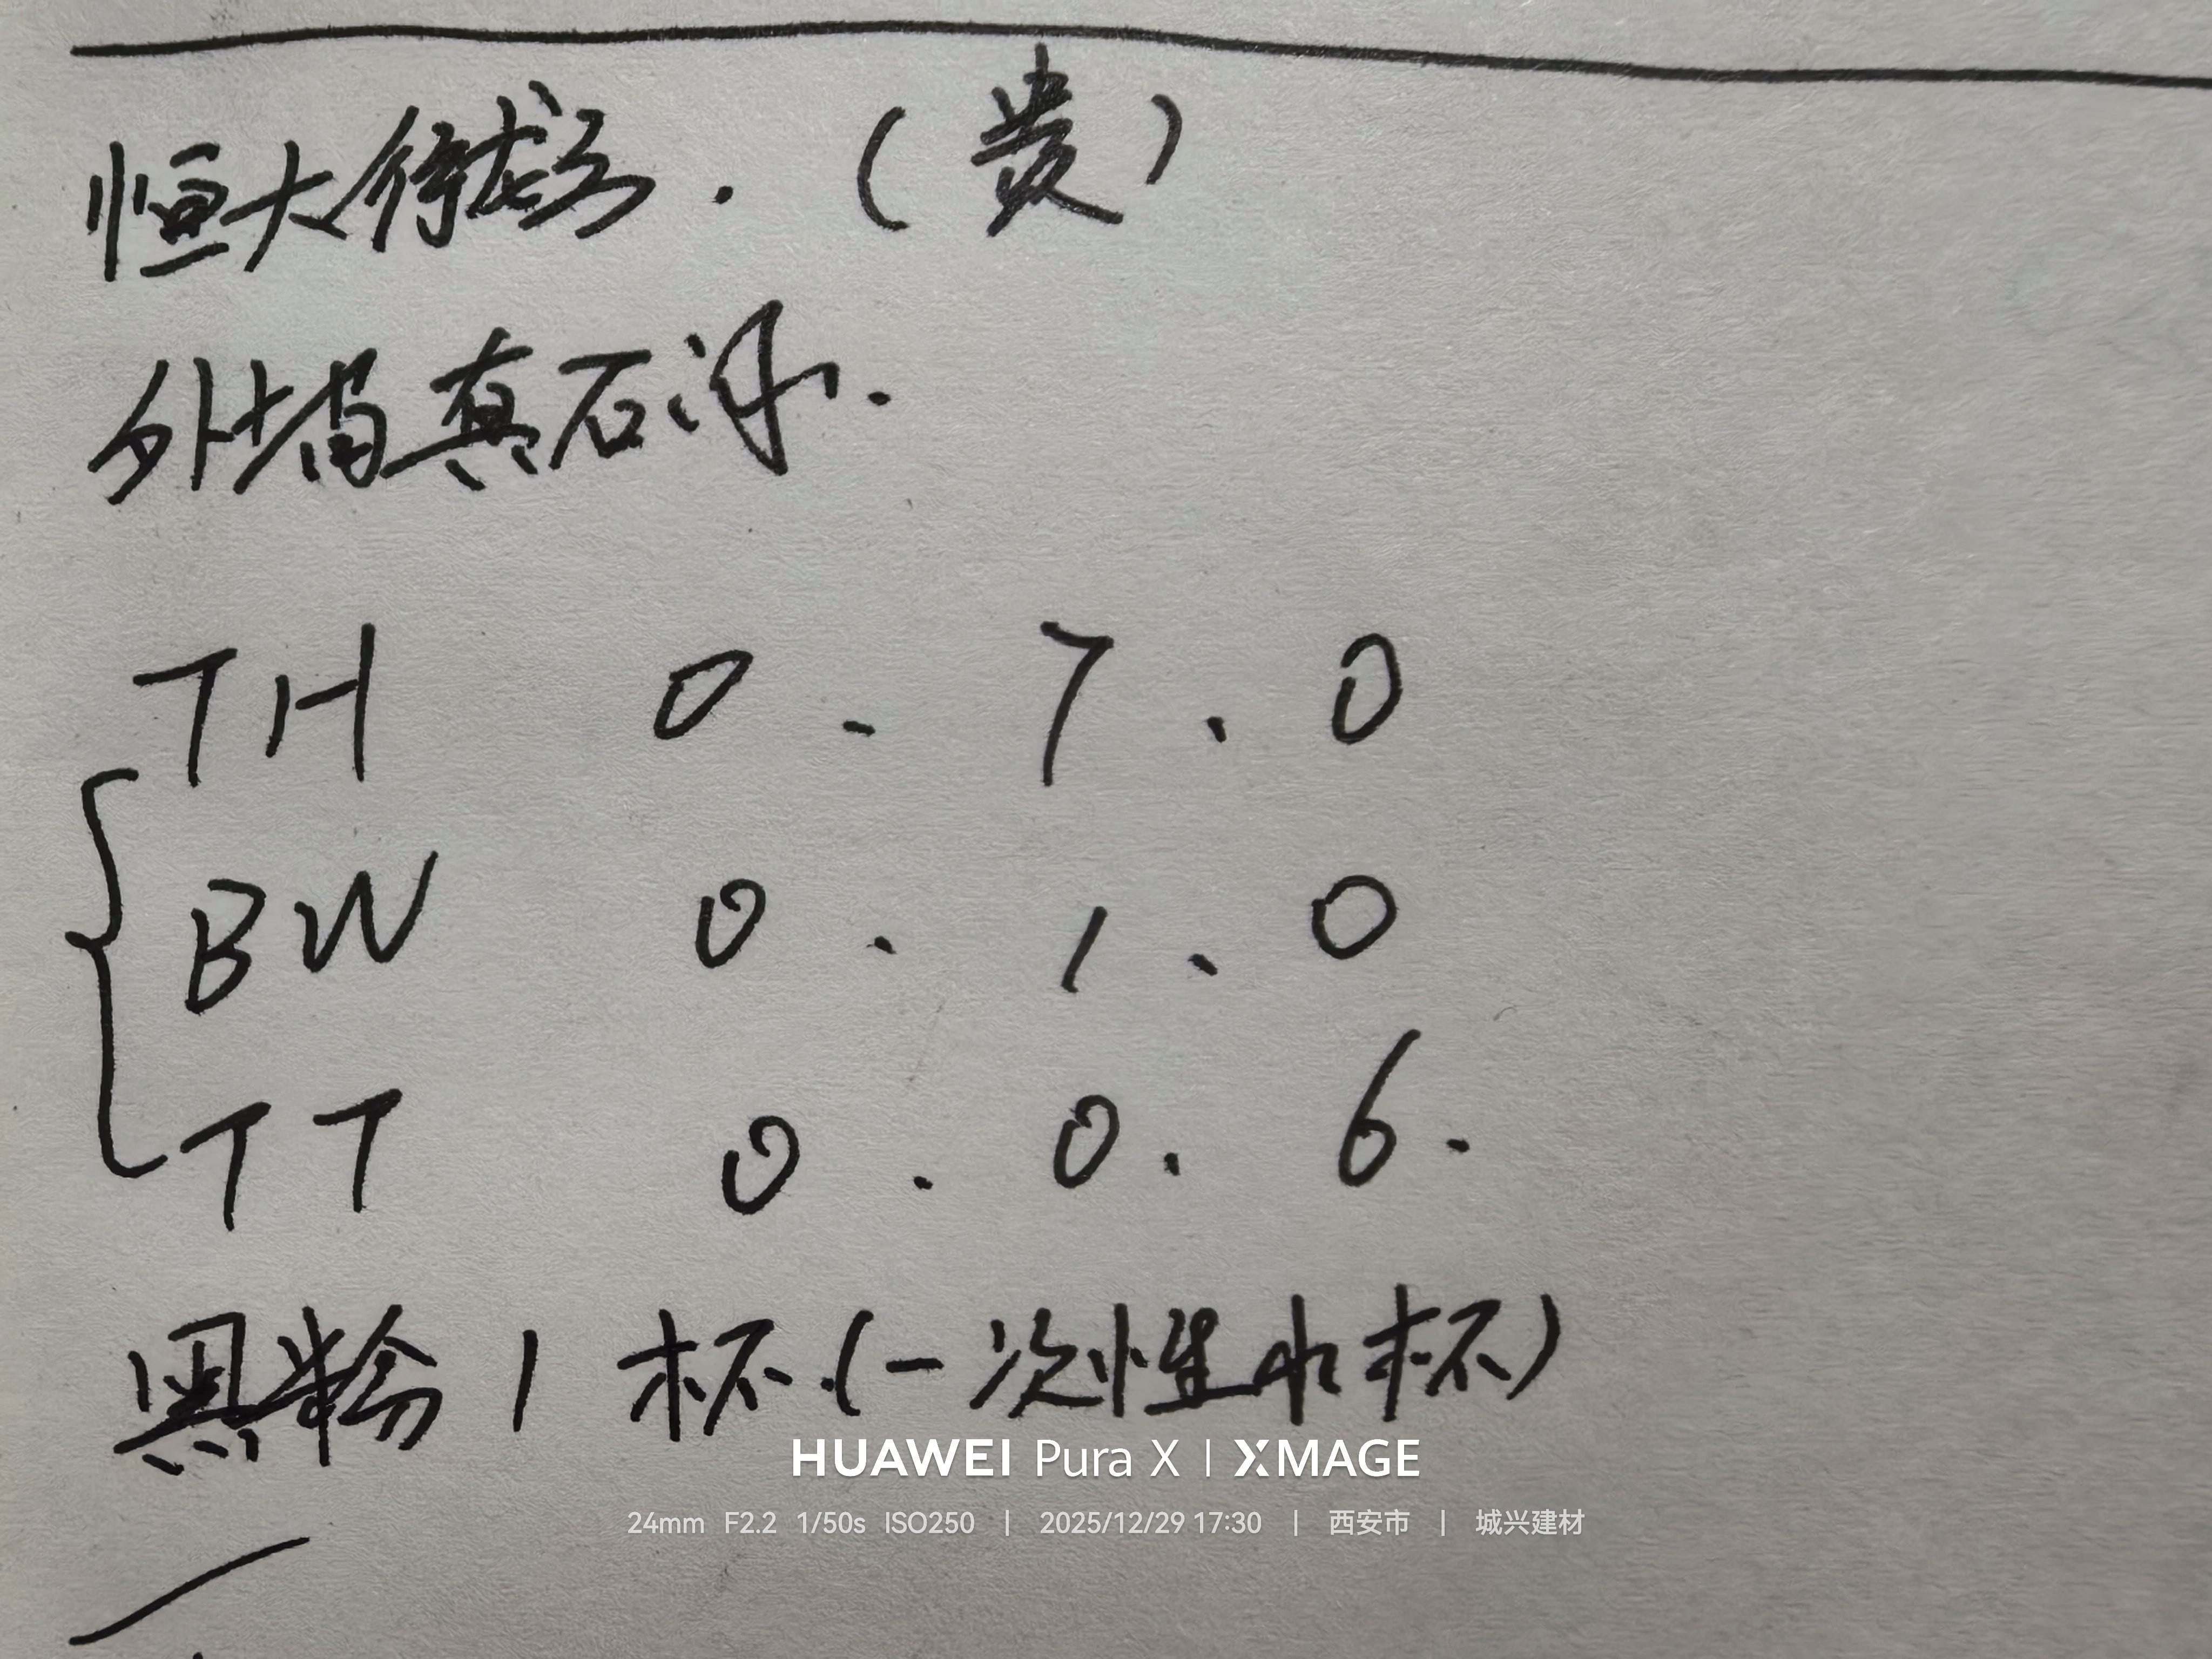 恒大绿龙. (贵)
外墙真石漆.
TH 0.7.0
BW 0.1.0
TT 0.0.6.
黑粉 1 杯.(一次性水杯)
HUAWEI Pura X | XMAGE
24mm F2.2 1/50s ISO250 | 2025/12/29 17:30 | 西安市 | 城兴建材